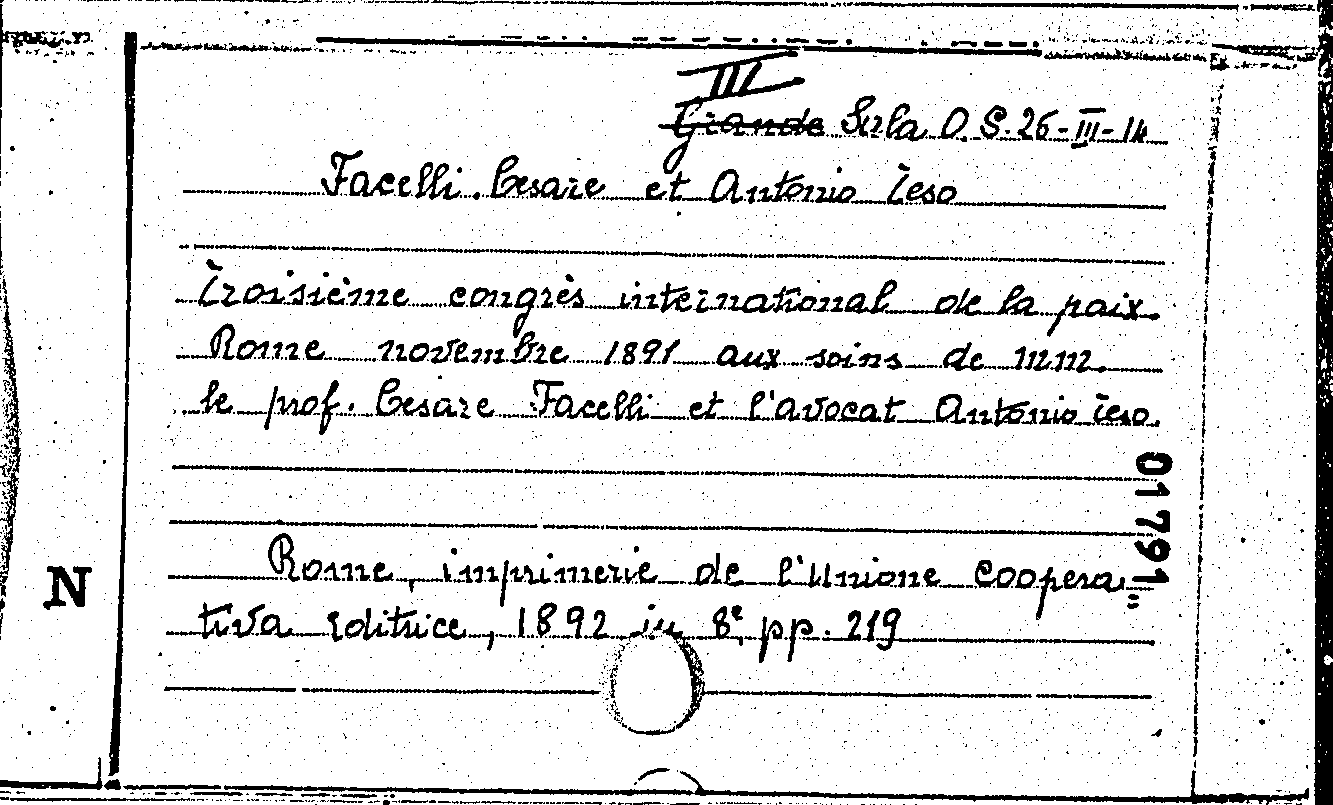 III
Grande Sala O.S. 26-III-14
Facelli Cesare et Antonio Teso
Troisième congrès international de la paix.
Rome novembre 1891 aux soins de MM.
le prof. Cesare Facelli et l'avocat Antonio Teso.
01791
N
Rome, imprimerie de l'Unione Coopera=
tiva Editrice, 1892 in 8º, pp. 219